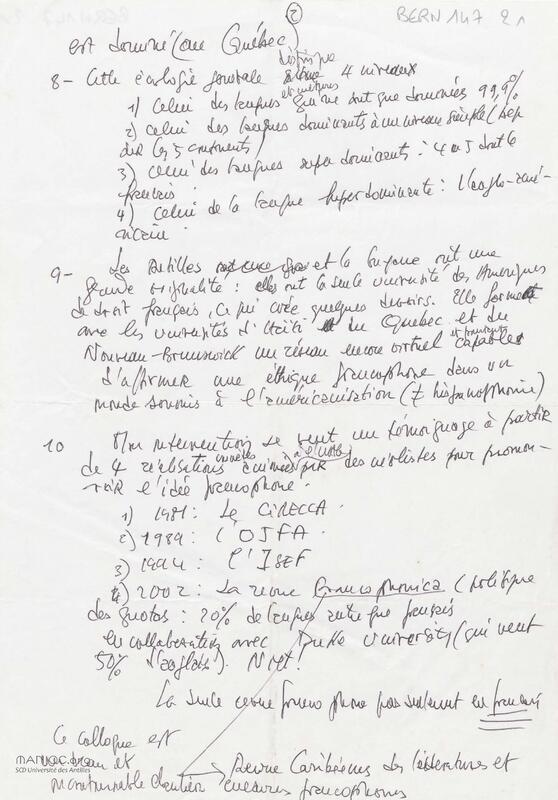 2
BERN 147 2
est dominé (au Québec)
8- Cette écologie générale distingue 4 niveaux
1) Celui des langues qui ne sont que dominées 99,9%
2) celui des langues dominantes à un niveau simple (
sur les 5 continents)
3) celui des langues supra dominantes : 4 ou 5 dont le
français
4) Celui de la langue hyperdominante : l'anglo-amé-
ricain
9- Les Antilles et la Guyane ont une
grande originalité : elles ont la seule université des Amériques
de droit français, ce qui crée quelques devoirs. Elle forme
avec les universités d'Haïti du Québec et du
Nouveau-Brunswick un réseau encore virtuel capable
d'affirmer une éthique francophone dans un
monde soumis à l'américanisation (≠ hispanophonie)
10 Mon intervention se veut un témoignage à partir
de 4 réalisations animées par des créolistes pour promou-
voir l'idée francophone.
1) 1981 : Le GIRECCA.
2) 1989 : L'OSFA.
3) 1994 : L'ISEF
4) 2002 : La revue Francophonica (politique
des quotas : 20% de langues autre que français
en collaboration avec Duke University (qui veut
50% d'anglais). Niet !
La seule revue francophone pas seulement en français
Ce colloque est
un beau et
Revue Caribéenne des littératures et
cultures francophones
MANIOC.org
SCD Université des Antilles